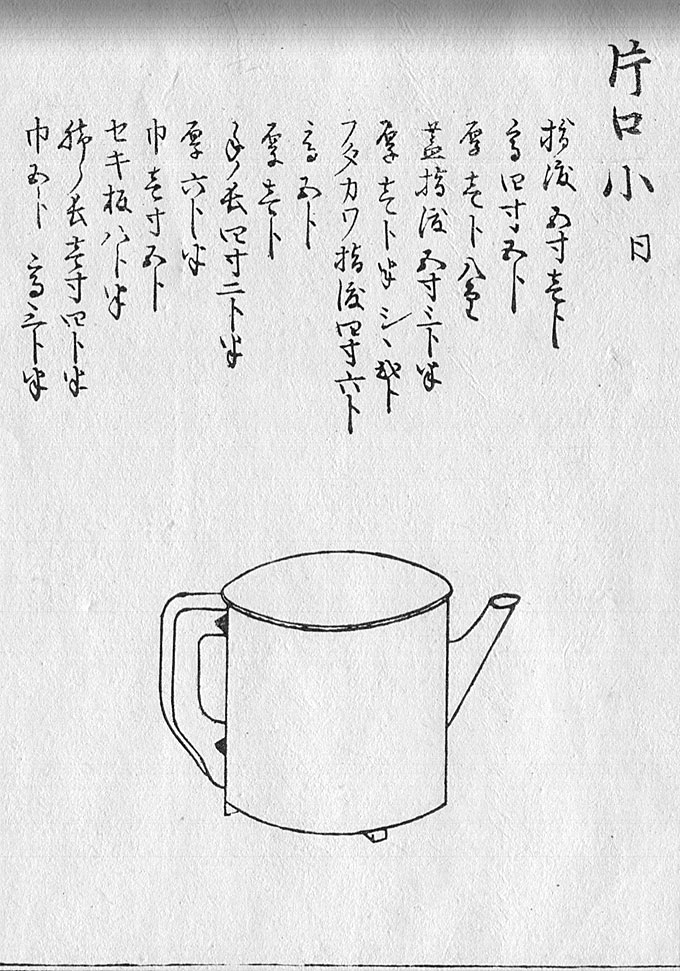 片口小 日
指渡 五寸壱卜
高四寸五卜
厚壱卜八里
蓋指渡 五寸三卜半
厚壱卜半 シヽ
フタカワ指渡四寸六卜
高五卜
厚壱卜
手ノ長四寸二卜半
厚六卜半
巾壱寸五卜
セキ板八卜半
長壱寸四卜半
巾五卜 高三卜半